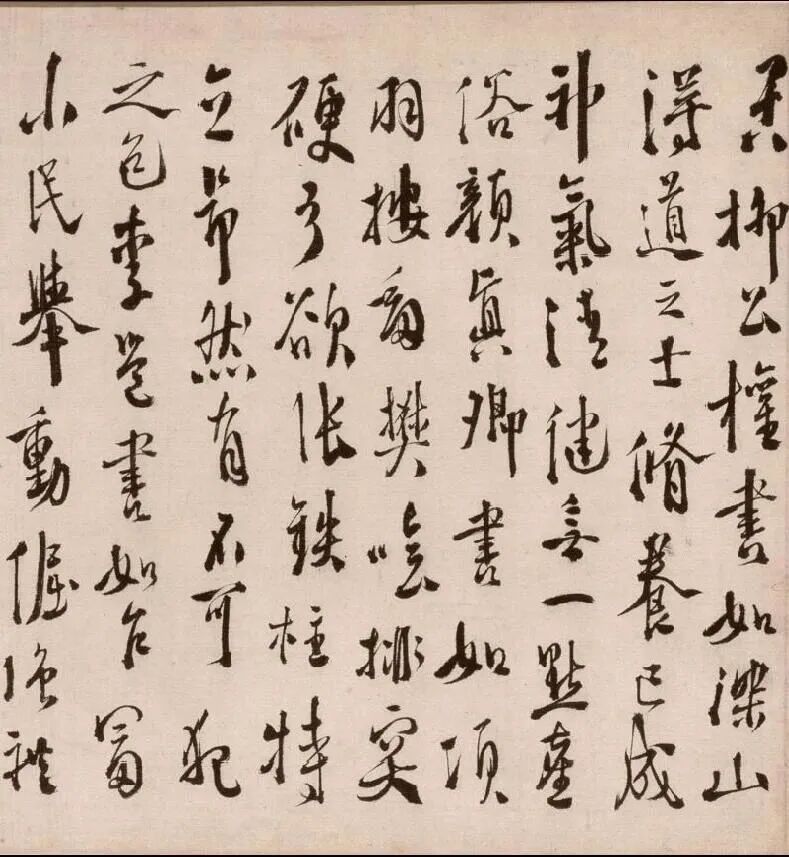 異柳公權書如深山
得道之士脩養已成
神氣清健無一點塵
俗顏眞卿書如項
羽樊噲排突
硬弓欲張鐵柱特
立昂然有不可犯
之色李邕書如乍富
小民舉動倔強禮